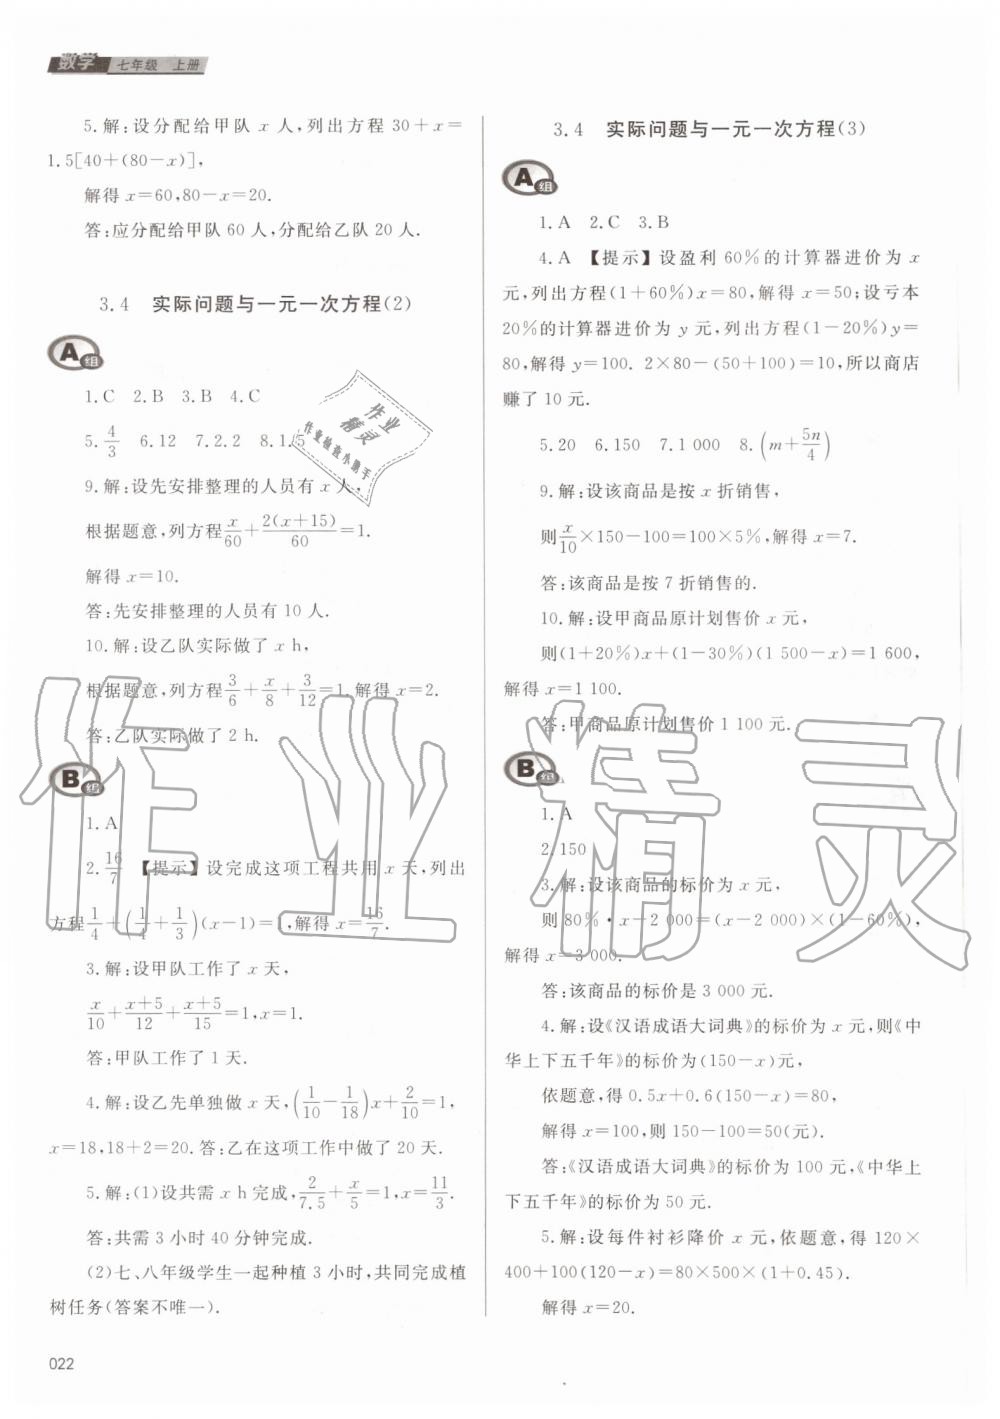 数学 七年级 上册
5.解:设分配给甲队 x 人,列出方程 30+x=
1.5[40+(80-x)],
解得 x=60,80-x=20.
答:应分配给甲队 60 人,分配给乙队 20 人.
3.4 实际问题与一元一次方程(2)
A组
1.C 2.B 3.B 4.C
5.4/3 6.12 7.2.2 8.1.5
9.解:设先安排整理的人员有 x 人,
根据题意,列方程x/60+2(x+15)/60=1.
解得 x=10.
答:先安排整理的人员有 10 人.
10.解:设乙队实际做了 x h,
根据题意,列方程3/6+x/8+3/12=1,解得 x=2.
答:乙队实际做了 2 h.
B组
1.A
2.16/7 【提示】设完成这项工程共用 x 天,列出
方程1/4+(1/4+1/3)(x-1)=1,解得 x=16/7.
3.解:设甲队工作了 x 天,
x/10+x+5/12+x+5/15=1,x=1.
答:甲队工作了 1 天.
4.解:设乙先单独做 x 天,(1/10-1/18)x+2/10=1,
x=18,18+2=20. 答:乙在这项工作中做了 20 天.
5.解:(1)设共需 x h 完成,2/7.5+x/5=1,x=11/3.
答:共需 3 小时 40 分钟完成.
(2)七、八年级学生一起种植 3 小时,共同完成植
树任务(答案不唯一).
022
3.4 实际问题与一元一次方程(3)
A组
1.A 2.C 3.B
4.A 【提示】设盈利 60%的计算器进价为 x
元,列出方程(1+60%)x=80,解得 x=50;设亏本
20%的计算器进价为 y 元,列出方程(1-20%)y=
80,解得 y=100. 2×80-(50+100)=10,所以商店
赚了 10 元.
5.20 6.150 7.1 000 8.(m+5n/4)
9.解:设该商品是按 x 折销售,
则x/10×150-100=100×5%,解得 x=7.
答:该商品是按 7 折销售的.
10.解:设甲商品原计划售价 x 元,
则(1+20%)x+(1-30%)(1 500-x)=1 600,
解得 x=1 100.
答:甲商品原计划售价 1 100 元.
B组
1.A
2.150
3.解:设该商品的标价为 x 元,
则 80%·x-2 000=(x-2 000)×(1-60%),
解得 x=3 000.
答:该商品的标价是 3 000 元.
4.解:设《汉语成语大词典》的标价为 x 元,则《中
华上下五千年》的标价为(150-x)元,
依题意,得 0.5x+0.6(150-x)=80,
解得 x=100,则 150-100=50(元).
答:《汉语成语大词典》的标价为 100 元,《中华上
下五千年》的标价为 50 元.
5.解:设每件衬衫降价 x 元,依题意,得 120×
400+100(120-x)=80×500×(1+0.45).
解得 x=20.
作业
精灵
作业检查小助手
作业精灵